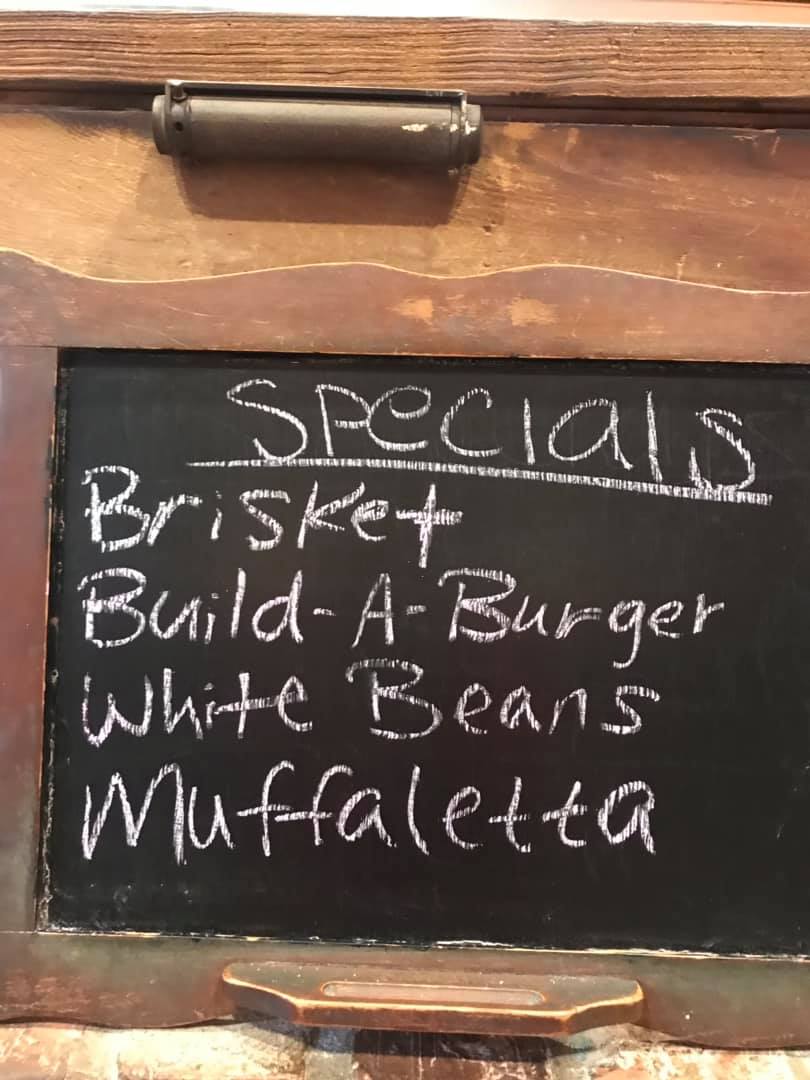 Specials
Brisket
Build-A-Burger
White Beans
Muffaletta